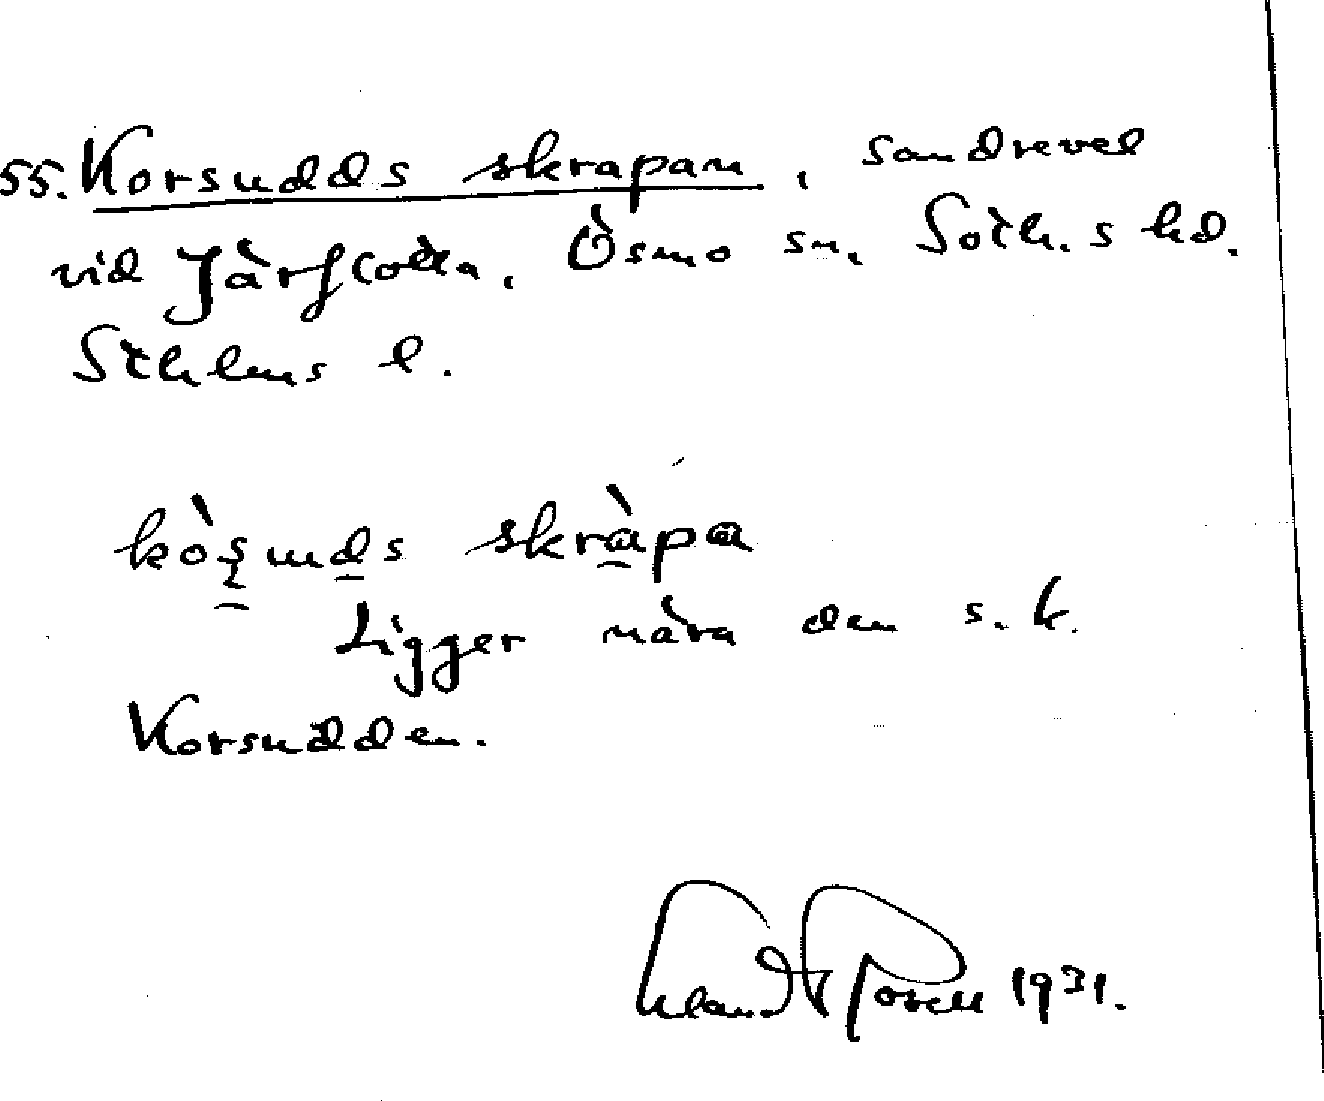 55. Korsudds skrapan, sandrevel
vid Järfcotta, Ösmo sn, Soth. s hd.
Sthlms l.
kòʂuds skràpa
Ligger nära den s. k.
Korsudden.
1931.